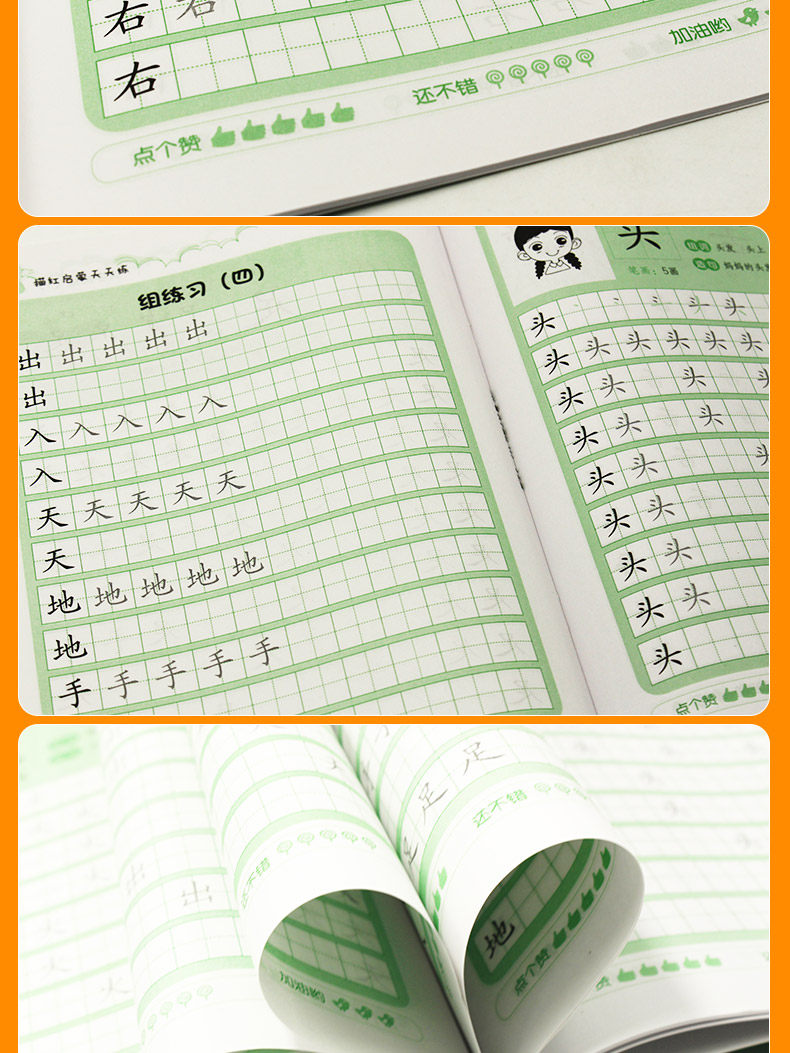 右 右
右
加油哟
还不错
点个赞
描红启蒙天天练
组练习（四）
出 出 出 出 出
出
入 入 入 入 入
入
天 天 天 天 天
天
地 地 地 地 地
地
手 手 手 手 手
头
组词 头发 头上
笔画：5画
造句 妈妈的头发
头 头 头
头 头 头 头 头 头
头 头 头 头
头 头 头
头 头 头
头 头
头 头
头 头
头
点个赞
足 足
足
足
还不错
还不错
出 出
地
点个赞
加油哟
火 火
火